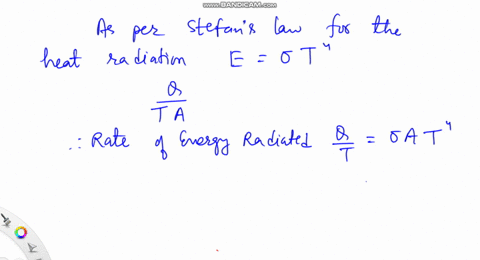 WWW.BANDICAM.COM
As per Stefan's law for the
heat radiation E = σ T⁴
Q
T A
∴ Rate of Energy Radiated Q/T = σ A T⁴